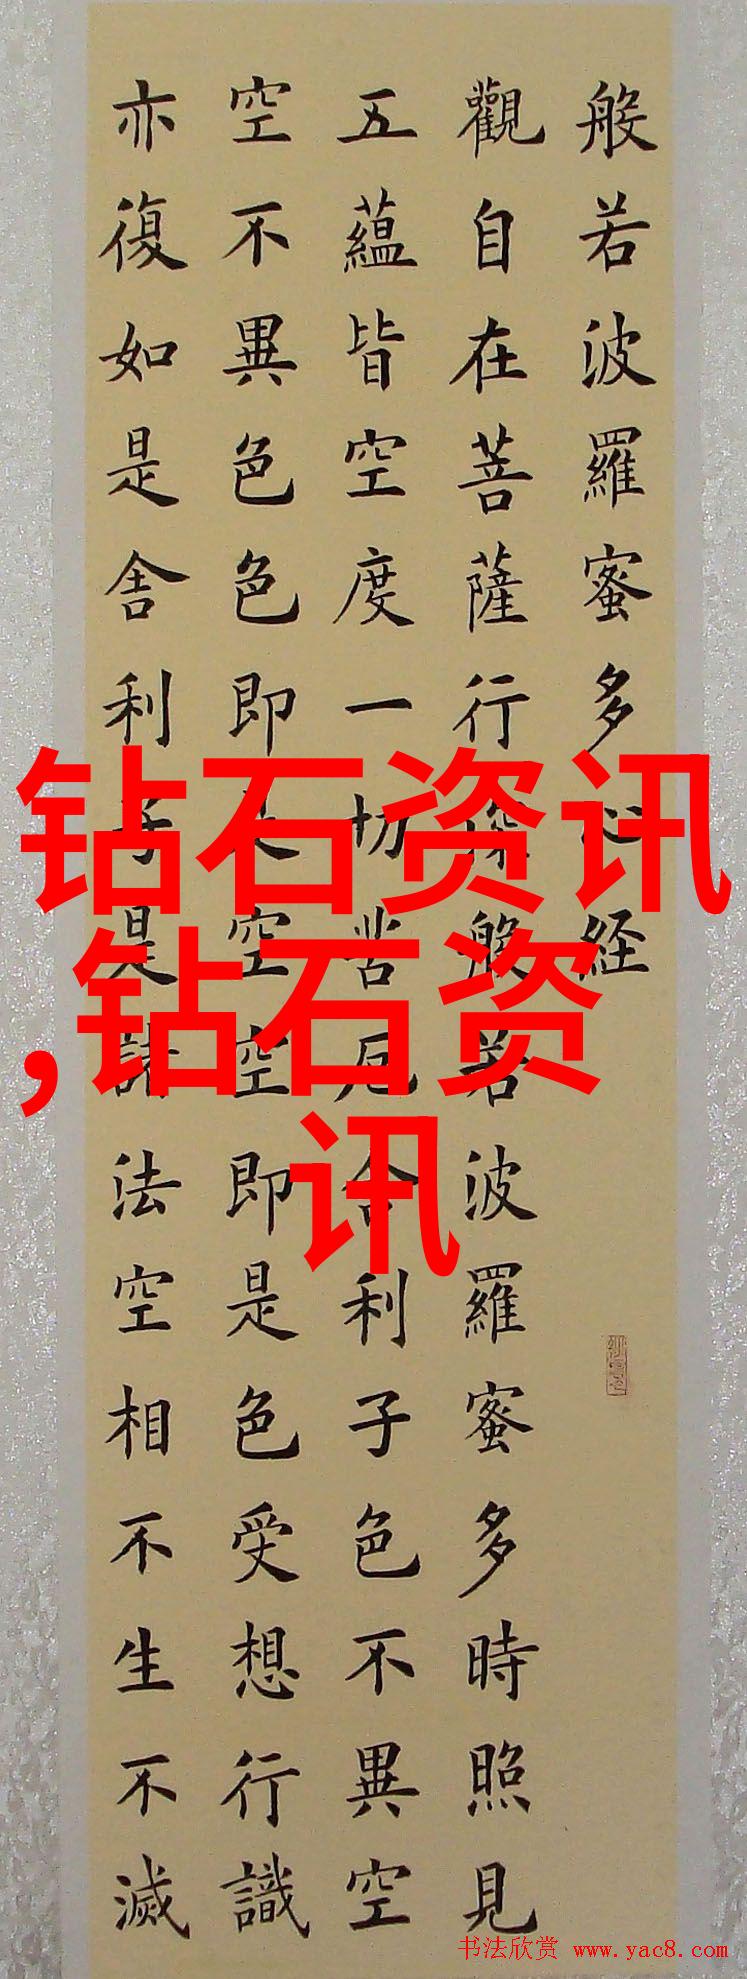 般若波羅蜜多心経
觀自在菩薩行深般若波羅蜜多時照見
五蘊皆空度一切苦厄舍利子色不異空
空不異色色即是空空即是色受想行識
亦復如是舍利子是諸法空相不生不滅
钻石资讯
,钻石资
讯
书法欣赏 www.yac8.com